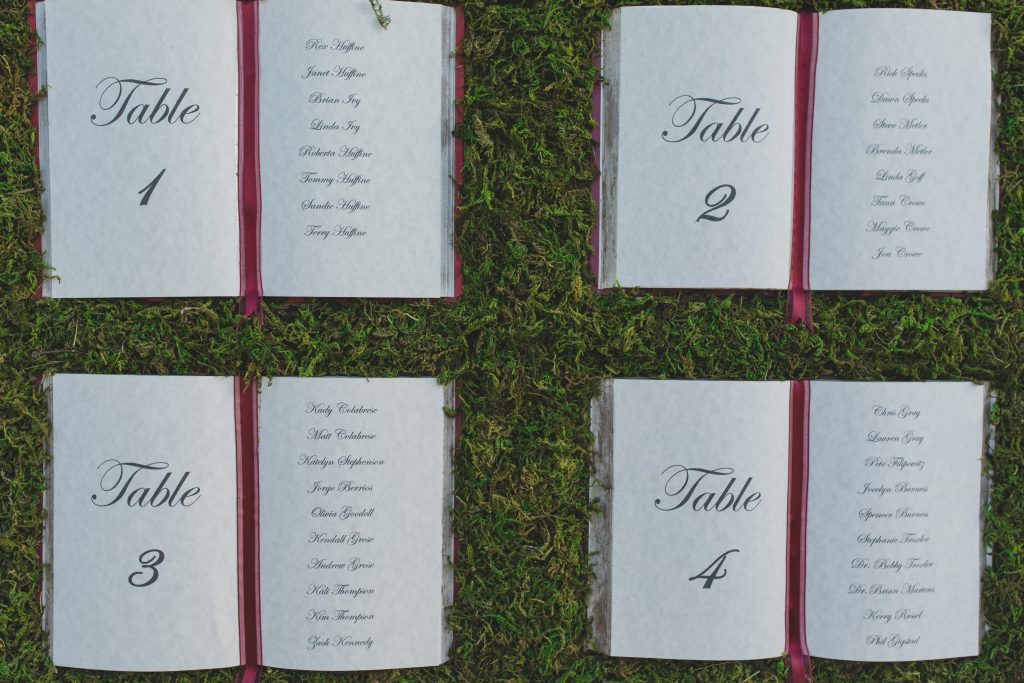 Table
1
Rex Huffine
Janet Huffine
Brian Ivy
Linda Ivy
Roberta Huffine
Tommy Huffine
Sandie Huffine
Terry Huffine
Table
2
Rick Specks
Dawn Specks
Steve Meiler
Brenda Meiler
Linda Goff
Tana Crowe
Maggie Crowe
Jon Crowe
Table
3
Kady Colabrese
Matt Colabrese
Katelyn Stephenson
Jorge Berrios
Olivia Goodell
Kendall Grose
Andrew Grose
Kali Thompson
Kim Thompson
Zach Kennedy
Table
4
Chris Gray
Lauren Gray
Pete Filipowitz
Jocelyn Burness
Spencer Burness
Stephanie Troxler
Dr. Bobby Troxler
Dr. Brian Martens
Kerry Russel
Phil Gigstad